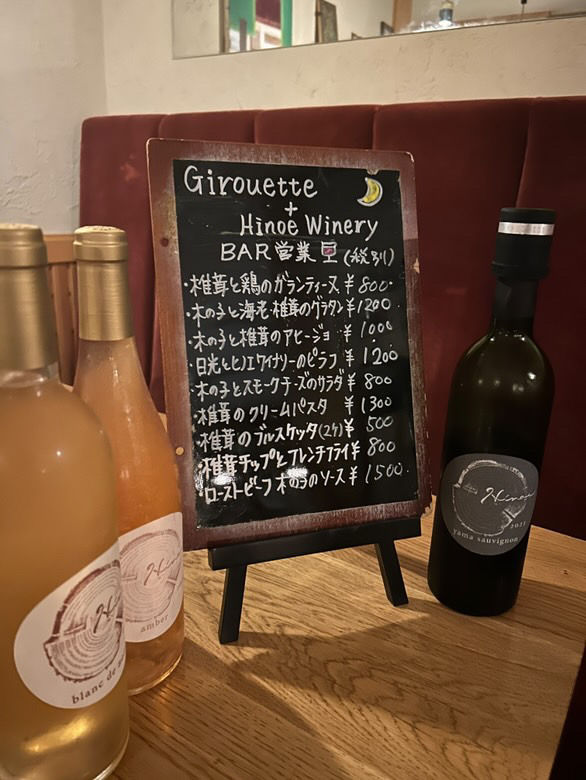 Girouette
+
Hinoe Winery
BAR営業 (税別)
・椎茸と鶏のガランティーヌ ¥800
・木の子と海老・椎茸のグラタン ¥1200
・木の子と椎茸のアヒージョ ¥1000
・日光とヒノエワイナリーのピラフ ¥1200
・木の子とスモークチーズのサラダ ¥800
・椎茸のクリームパスタ ¥1300
・椎茸のブルスケッタ(2ケ) ¥500
・椎茸チップとフレンチフライ ¥800
・ローストビーフ 木の子のソース ¥1500
Hinoe
2021
yama sauvignon
amber
blanc de